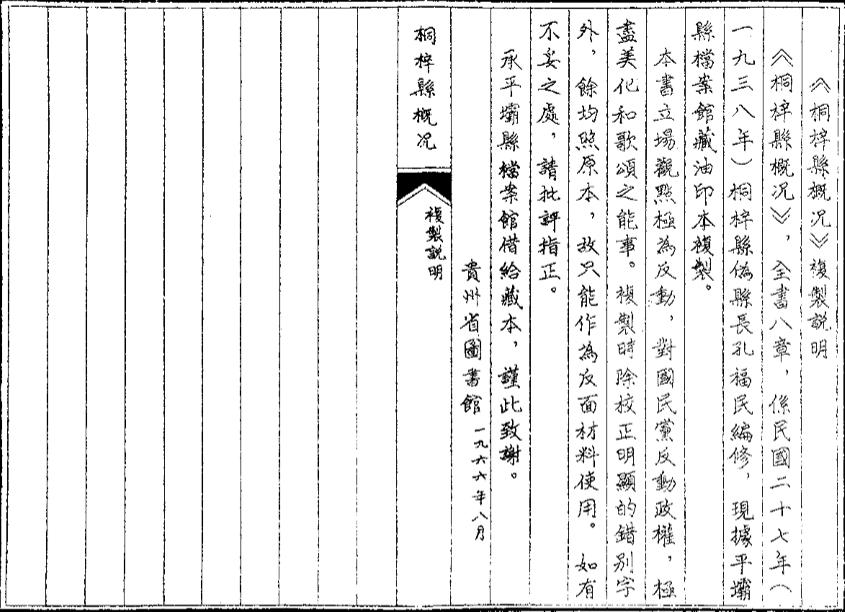 《桐梓縣概况》複製説明
《桐梓縣概况》，全書八章，係民國二十七年（
一九三八年）桐梓縣偽縣長孔福民編修，現據平壩
縣檔案館藏油印本複製。
本書立場觀點極為反動，對國民黨反動政權，極
盡美化和歌頌之能事。複製時除校正明顯的錯别字
外，餘均照原本，故只能作為反面材料使用。如有
不妥之處，請批評指正。
承平壩縣檔案館借給藏本，謹此致謝。
貴州省圖書館 一九六六年八月
桐梓縣概况
複製説明